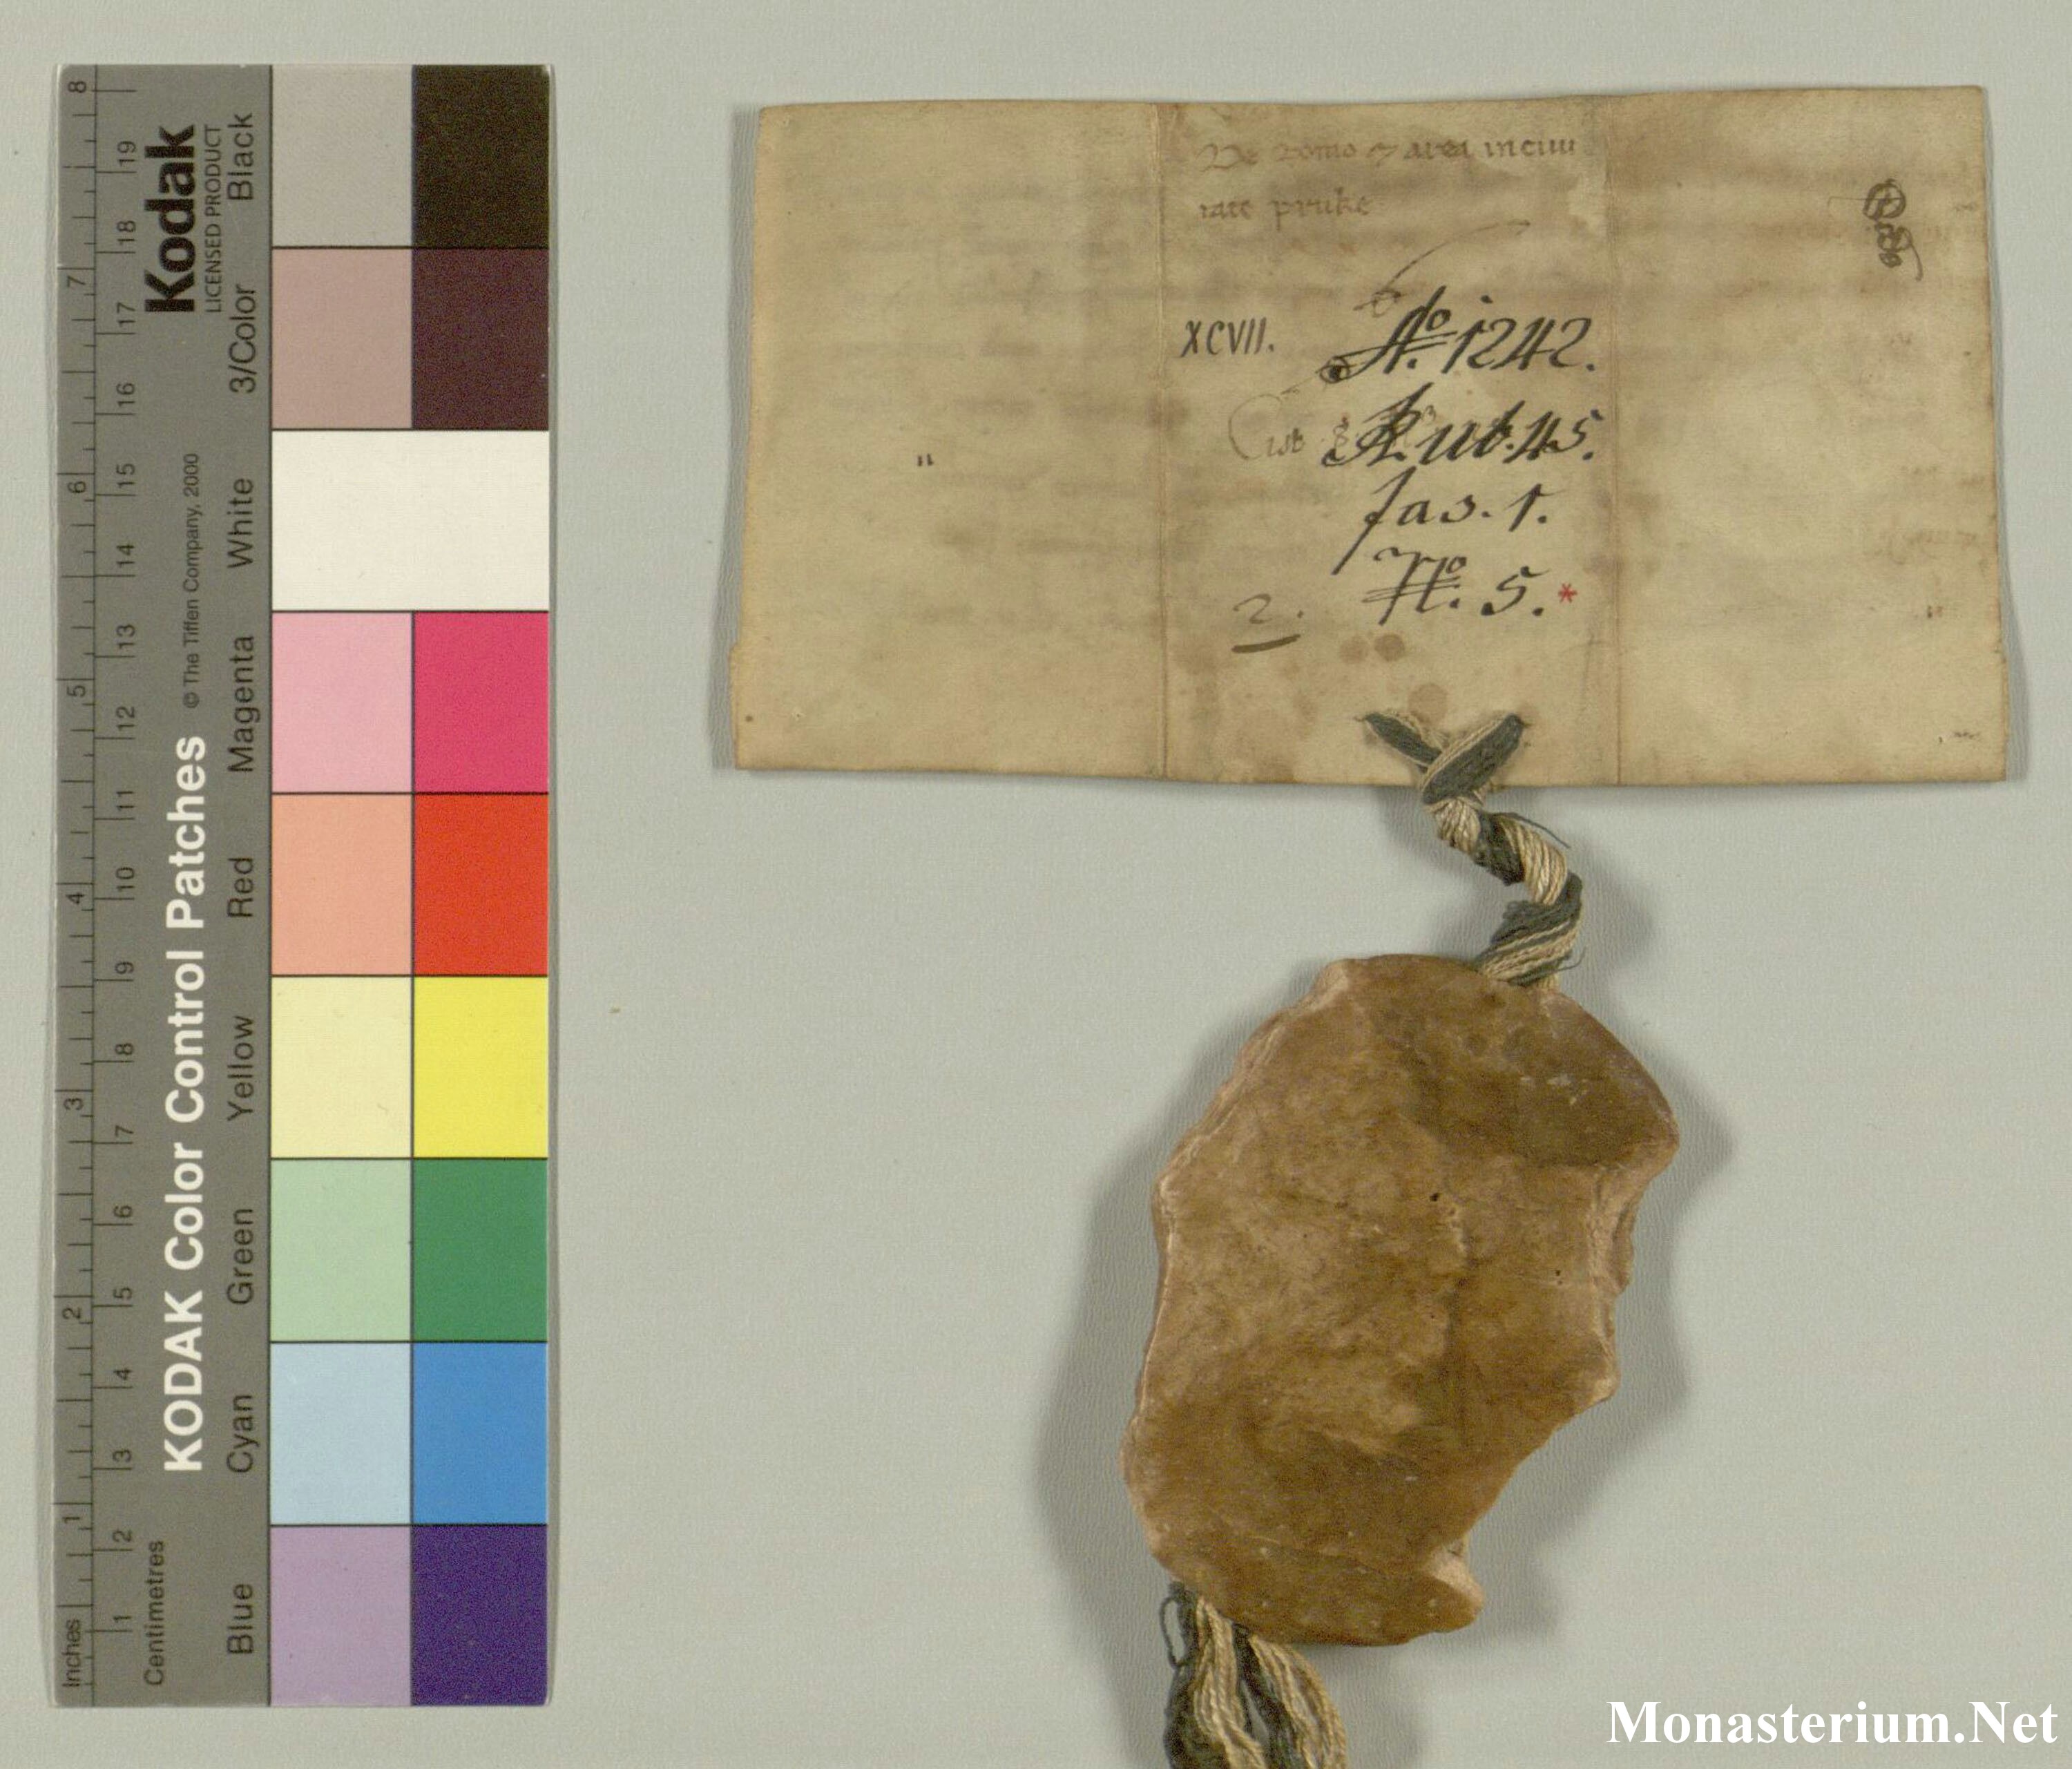 De domo & area in ciui
tate pruke
XCVII.
Ao. 1242.
Rub. 45.
fas. 1.
No. 5.*
2.
Kodak
LICENSED PRODUCT
KODAK Color Control Patches
© The Tiffen Company, 2000
Black
3/Color
White
Magenta
Red
Yellow
Green
Cyan
Blue
8
7
6
5
4
3
2
1
Inches
19
18
17
16
15
14
13
12
11
10
9
8
7
6
5
4
3
2
1
Centimetres
Monasterium.Net